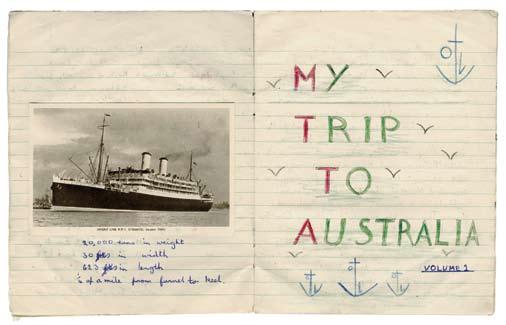 ORIENT LINE R.M.S.
20,000 tons in weight
30 in width
in length
of a mile from funnel to keel.
MY
TRIP
TO
AUSTRALIA
VOLUME 1